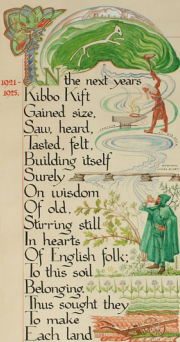 1921-
1925.
IN the next years
Kibbo Kift
Gained size,
Saw, heard,
Tasted, felt,
Building itself
Surely
On wisdom
Of old,
Stirring still
In hearts
Of English folk;
To this soil
Belonging.
Thus sought they
To make
Each land